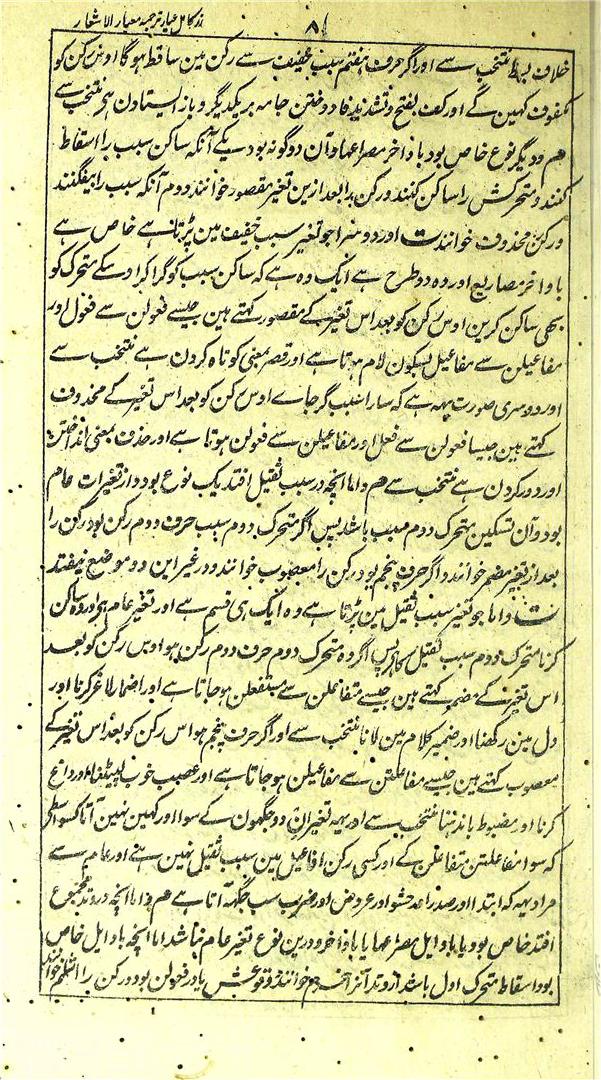 زر کامل عیار ترجمہ معیار الاشعار
۸۱
خلاف بسط منتخب سے اور اگر حرف ہفتم سبب خفیف سے رکن مین ساقط ہوگا اوس رکن کو
مکفوف کہین گے اور کف بفتح و تشدید فا دوختن جامہ بر یکدیگر و باز ایستادن ہے منتخب سے
هم و دیگر نوع خاص بود باواخر مصراعها و آن دو گونه بود یکے آنکه ساکن سبب را اسقاط
کنند و متحرکش را ساکن کنند و رکن را بعد ازین تغیر مقصور خوانند دوم آنکه سبب را بیفگنند
و رکن محذوف خوانند ت اور دوسرا جو تغیر سبب خفیف مین پڑتا ہے خاص ہے
باواخر مصاریع اور وہ دو طرح ہے ایک وہ ہے کہ ساکن سبب کو گرا کر اوسکے متحرک کو
بھی ساکن کرین اوس رکن کو بعد اس تغیر کے مقصور کہتے ہین جیسے فعولن سے فعول اور
مفاعیلن سے مفاعیل بسکون لام ہوتا ہے اور قصر بمعنی کوتاہ کردن ہے منتخب سے
اور دوسری صورت یہہ ہے کہ سارا سبب گر جاے اوس رکن کو بعد اس تغیر کے محذوف
کہتے ہین جیسا فعولن سے فعل اور مفاعیلن سے فعولن ہوتا ہے اور حذف بمعنی انداختن
اور دور کردن ہے منتخب سے هم و اما انچه در سبب ثقیل افتد یک نوع بود و از تغیرات عام
بود و آن تسکین متحرک دوم سبب باشد پس اگر متحرک دوم سبب حرف دوم رکن بود رکن را
بعد از تغیر مضمر خوانند و اگر حرف پنجم بود رکن را معصوب خوانند و در غیر این دو موضع نیفتد
ت و اما جو تغیر سبب ثقیل مین پڑتا ہے وہ ایک ہی قسم ہے اور تغیر عام ہے اور وہ ساکن
کرنا متحرک دوم سبب ثقیل کا ہے پس اگر وہ متحرک دوم حرف دوم رکن ہو اوس رکن کو بعد
اس تغیر کے مضمر کہتے ہین جیسے متفاعلن سے مستفعلن ہو جاتا ہے اور اضمار لاغر کرنا اور
دل مین رکھنا اور ضمیر کلام مین لانا منتخب سے اور اگر حرف پنجم ہو اس رکن کو بعد اس تغیر کے
معصوب کہتے ہین جیسے مفاعلتن سے مفاعیلن ہو جاتا ہے اور عصب خوب لپیٹنا اور
کرنا اور مضبوط باندھنا منتخب سے اور یہہ تغیر ان دو جگھون کے سوا اور کہین نہین آتا کسواسطے
کہ سوا مفاعلتن متفاعلن کے اور کسی رکن افاعیل مین سبب ثقیل نہین ہے اور عام سے
مراد یہہ کہ ابتدا اور صدر اور حشو اور عروض اور ضرب سب جگہہ آتا ہے هم و اما انچه در وتد مجموع
افتد خاص بود یا باوایل مصراعها یا باواخر و درین نوع تغیر عام نباشد اما انچه باوایل خاص
بود اسقاط متحرک اول باشد از وتد و آنرا خرم خوانند و وقوعش یا در فعولن بود و رکن را اثلم خوانند